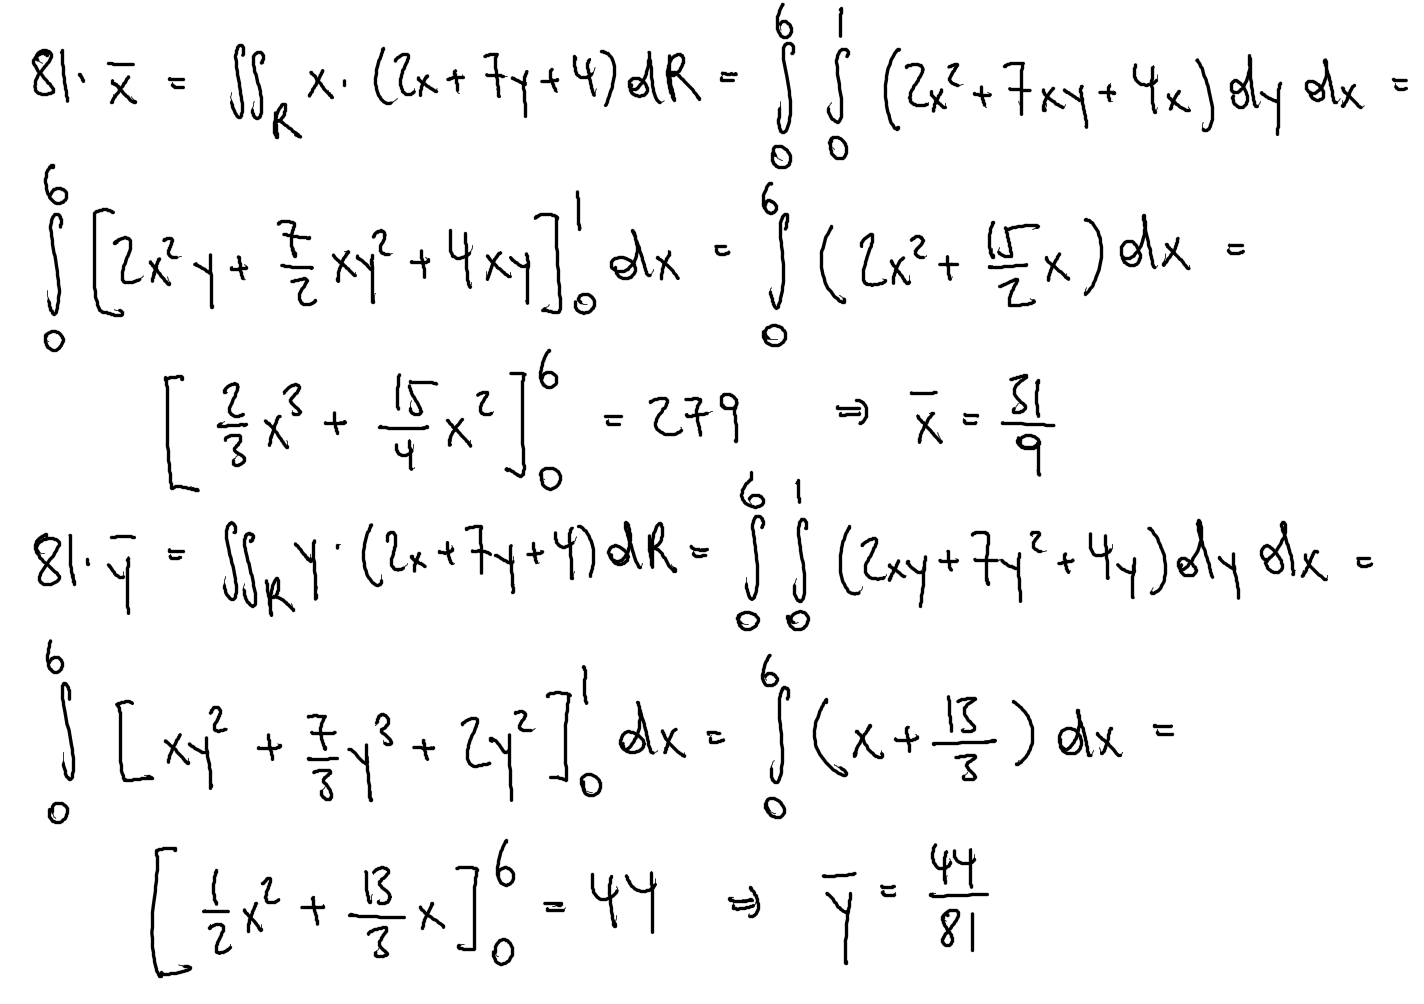 81· x̄ = ∬_R x·(2x+7y+4)dR = ∫₀⁶ ∫₀¹ (2x²+7xy+4x)dy dx =
∫₀⁶ [2x²y + 7/2 xy² + 4xy]₀¹ dx = ∫₀⁶ (2x² + 15/2 x) dx =
[2/3 x³ + 15/4 x²]₀⁶ = 279 ⇒ x̄ = 31/9
81· ȳ = ∬_R y·(2x+7y+4)dR = ∫₀⁶ ∫₀¹ (2xy+7y²+4y)dy dx =
∫₀⁶ [xy² + 7/3 y³ + 2y²]₀¹ dx = ∫₀⁶ (x + 13/3) dx =
[1/2 x² + 13/3 x]₀⁶ = 44 ⇒ ȳ = 44/81